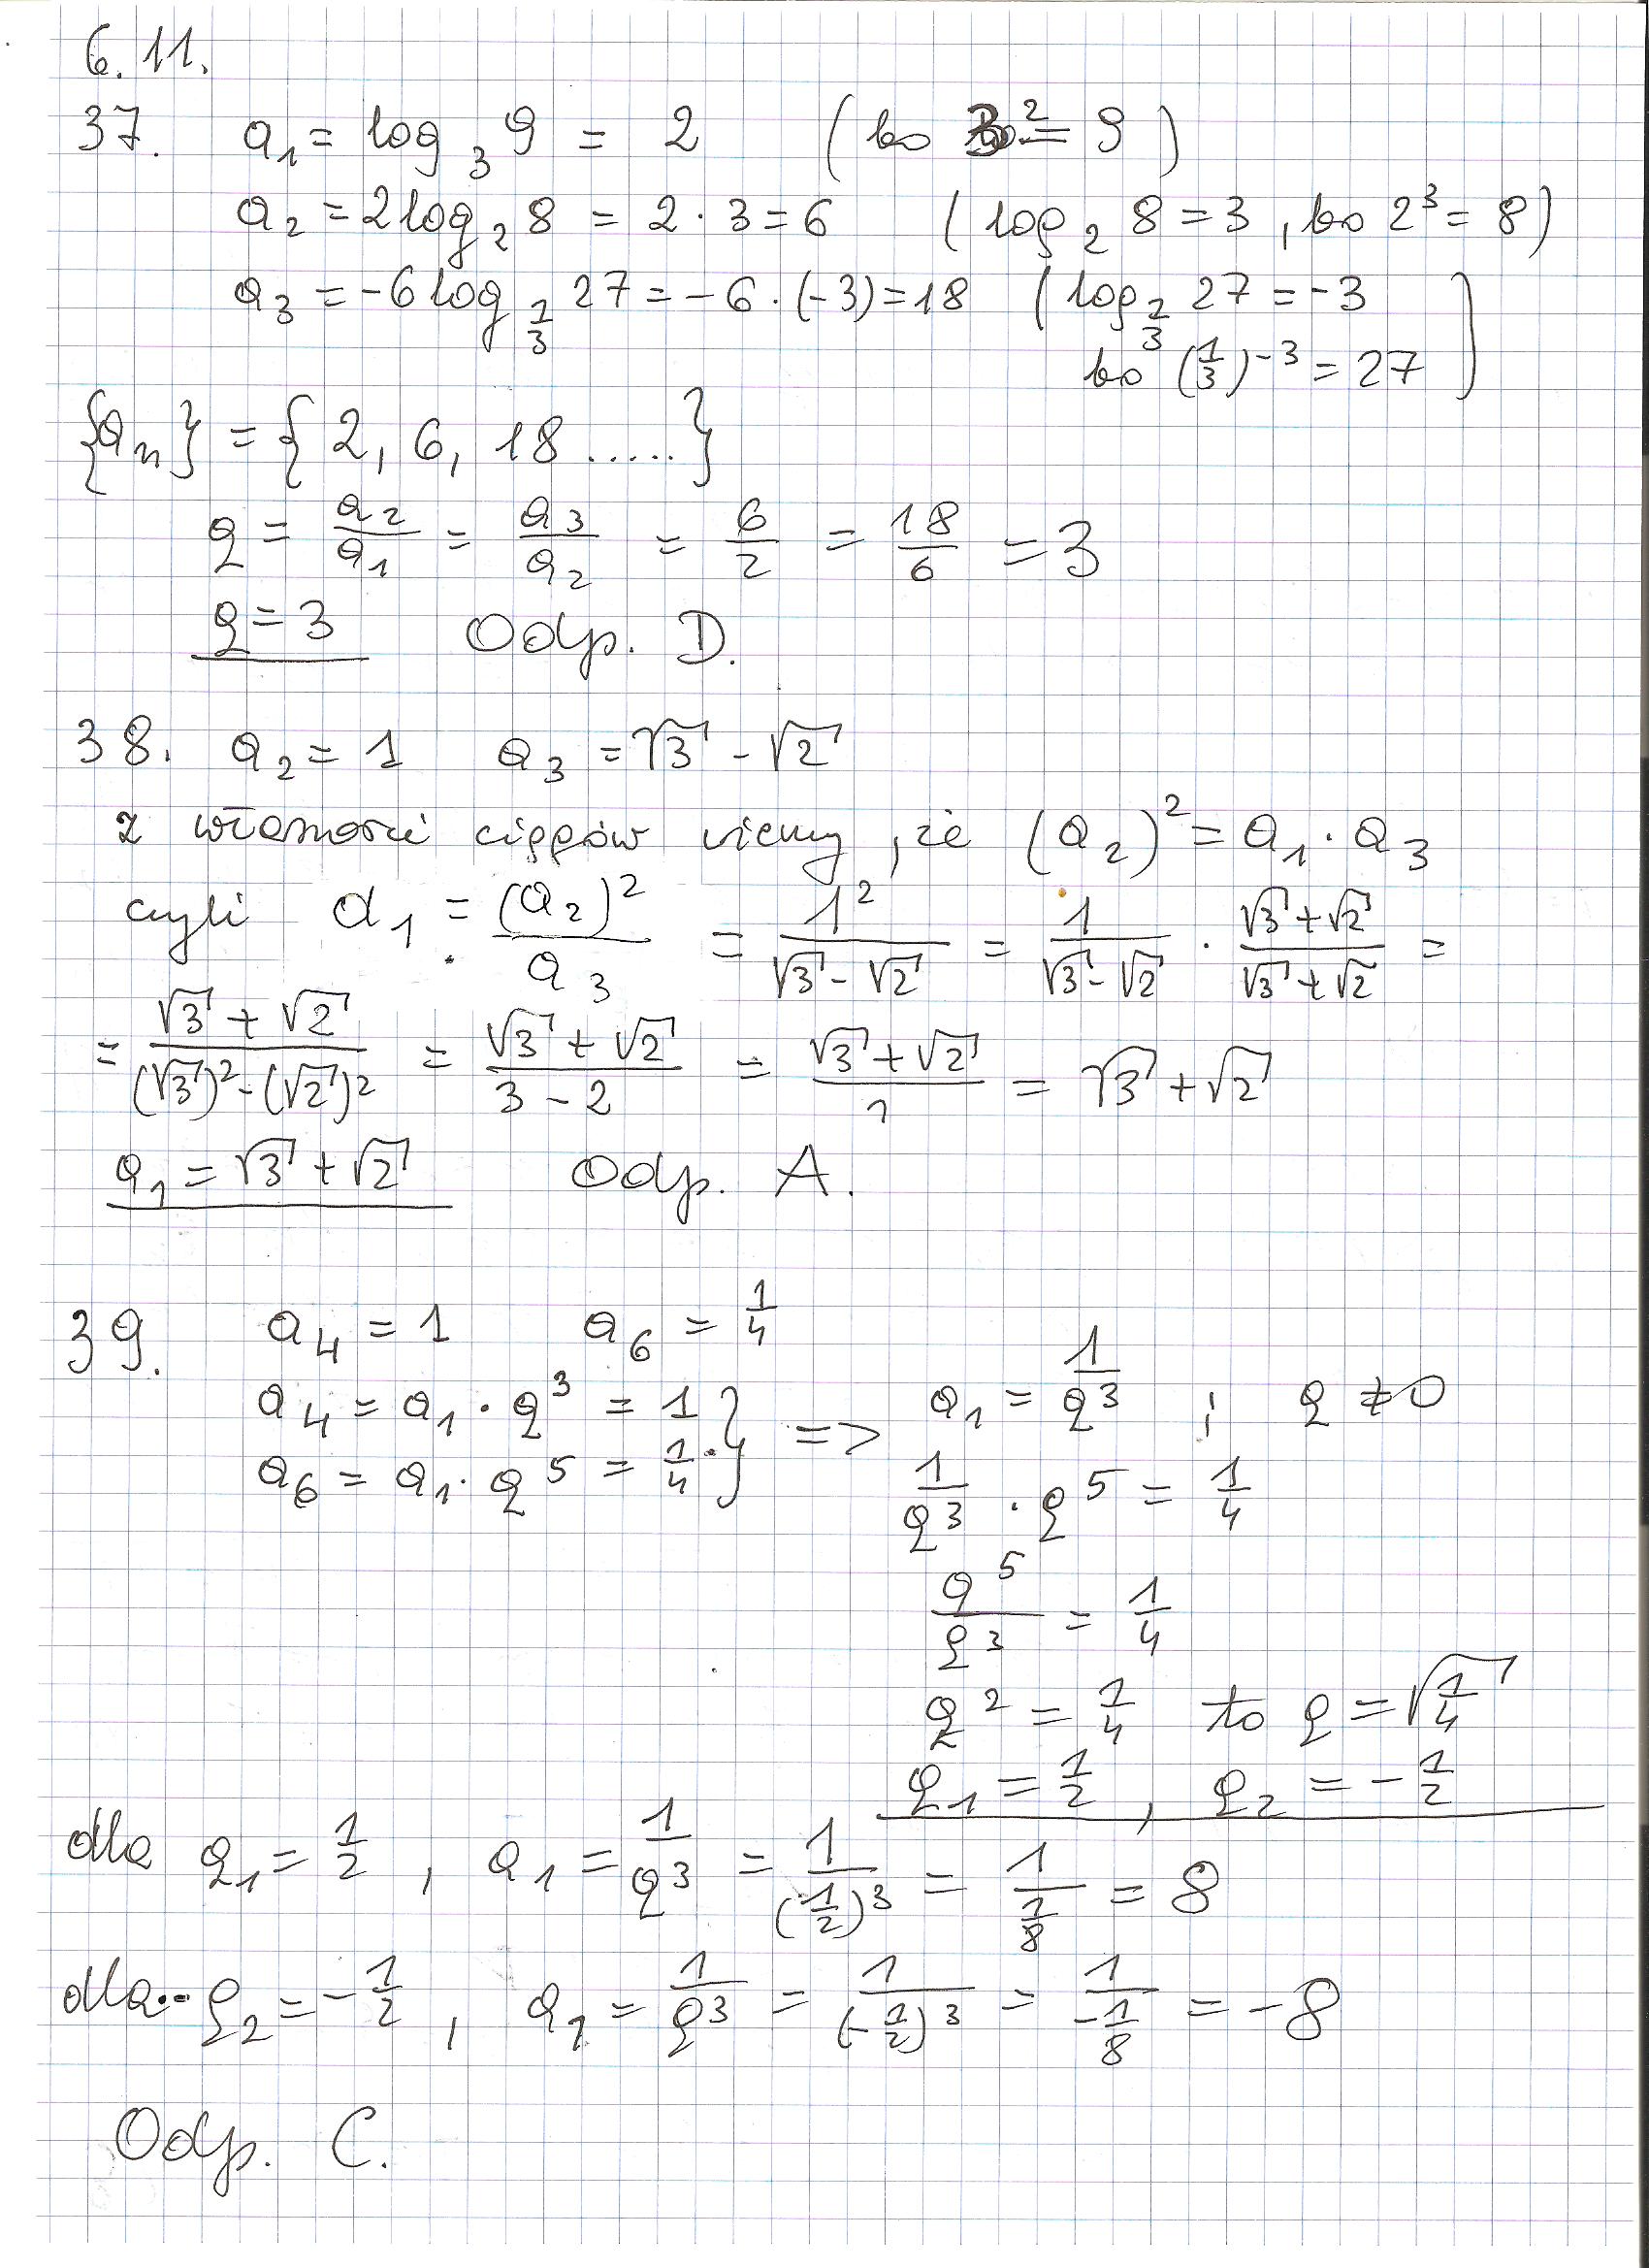 6.11.
37. a₁ = log₃ 9 = 2 (bo 3² = 9)
a₂ = 2log₂ 8 = 2 · 3 = 6 (log₂ 8 = 3, bo 2³ = 8)
a₃ = -6 log_{1/3} 27 = -6 · (-3) = 18 (log_{1/3} 27 = -3
bo (1/3)⁻³ = 27)
{aₙ} = {2, 6, 18 .....}
q = a₂/a₁ = a₃/a₂ = 6/2 = 18/6 = 3
q = 3 Odp. D.
38. a₂ = 1 a₃ = √3 - √2
z własności ciągów wiemy, że (a₂)² = a₁ · a₃
czyli a₁ = (a₂)²/a₃ = 1²/(√3 - √2) = 1/(√3 - √2) · (√3 + √2)/(√3 + √2) =
= (√3 + √2)/((√3)² - (√2)²) = (√3 + √2)/(3 - 2) = (√3 + √2)/1 = √3 + √2
a₁ = √3 + √2 Odp. A.
39. a₄ = 1 a₆ = 1/4
a₄ = a₁ · q³ = 1 } => a₁ = 1/q³ ; q ≠ 0
a₆ = a₁ · q⁵ = 1/4 } 1/q³ · q⁵ = 1/4
q⁵/q³ = 1/4
q² = 1/4 to q = √(1/4)
q₁ = 1/2, q₂ = -1/2
dla q₁ = 1/2, a₁ = 1/q³ = 1/(1/2)³ = 1/(1/8) = 8
dla q₂ = -1/2, a₁ = 1/q³ = 1/(-1/2)³ = 1/(-1/8) = -8
Odp. C.